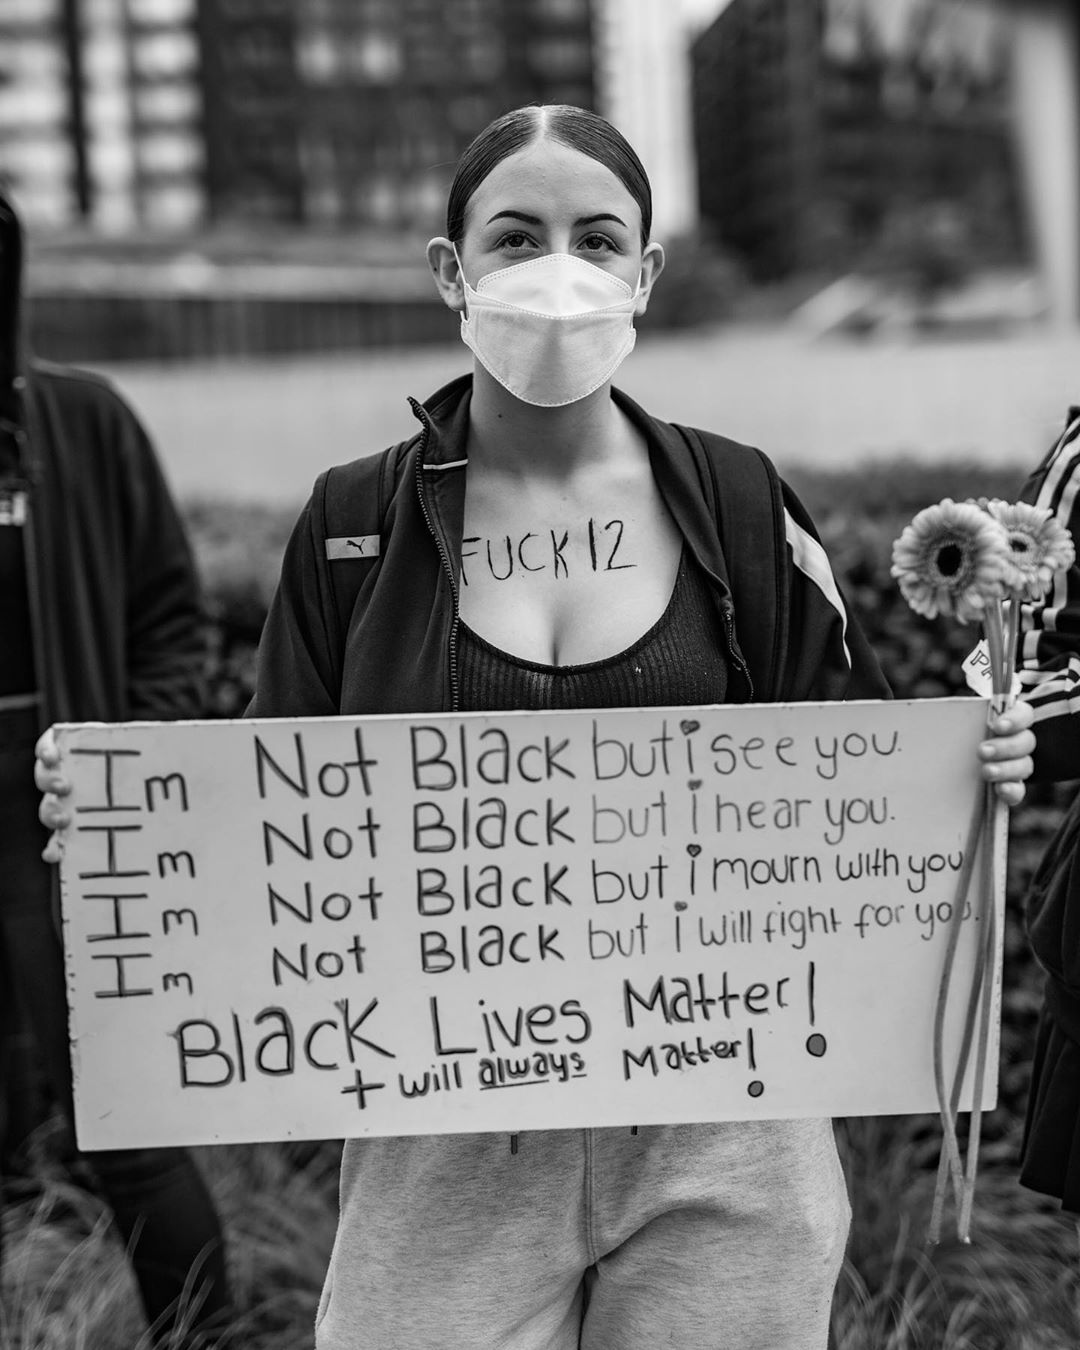 FUCK 12
Im Not Black but i see you.
Im Not Black but i hear you.
Im Not Black but i mourn with you
Im Not Black but i will fight for you.
Black Lives Matter!
+ will always Matter!